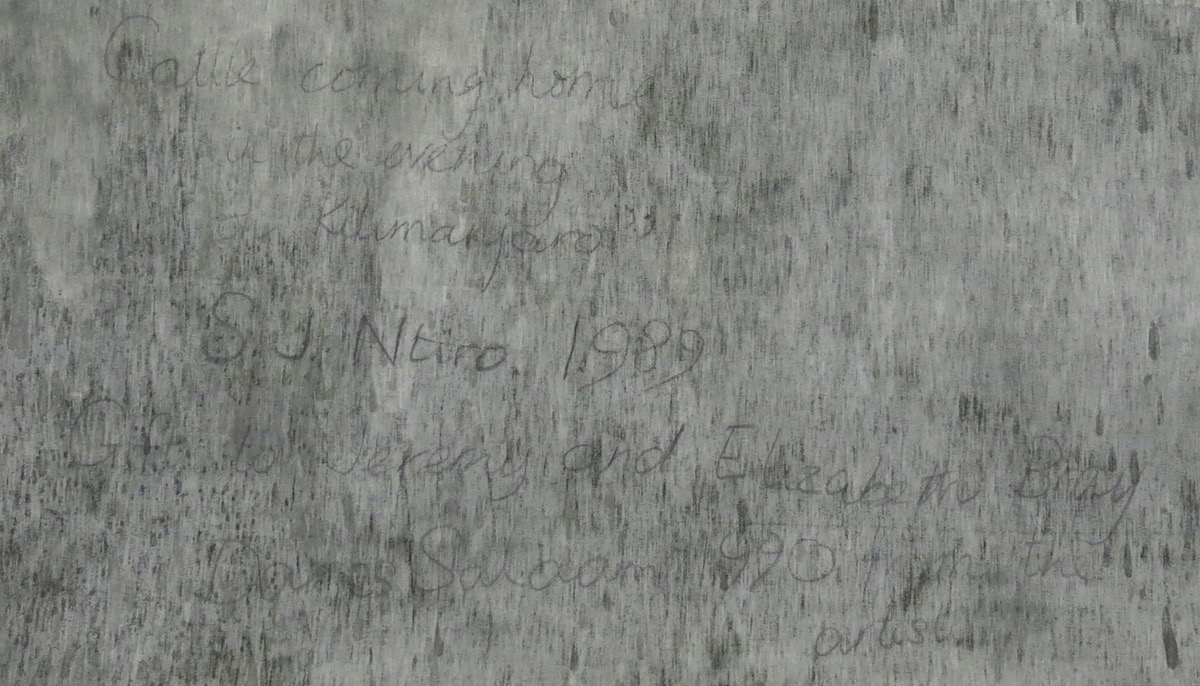 Cattle coming home
in the evening
in Kilimanjaro"
S.J. Ntiro. 1989
Gift to Jeremy and Elizabeth Bray
Dar es Salaam 1990. from the
artist.